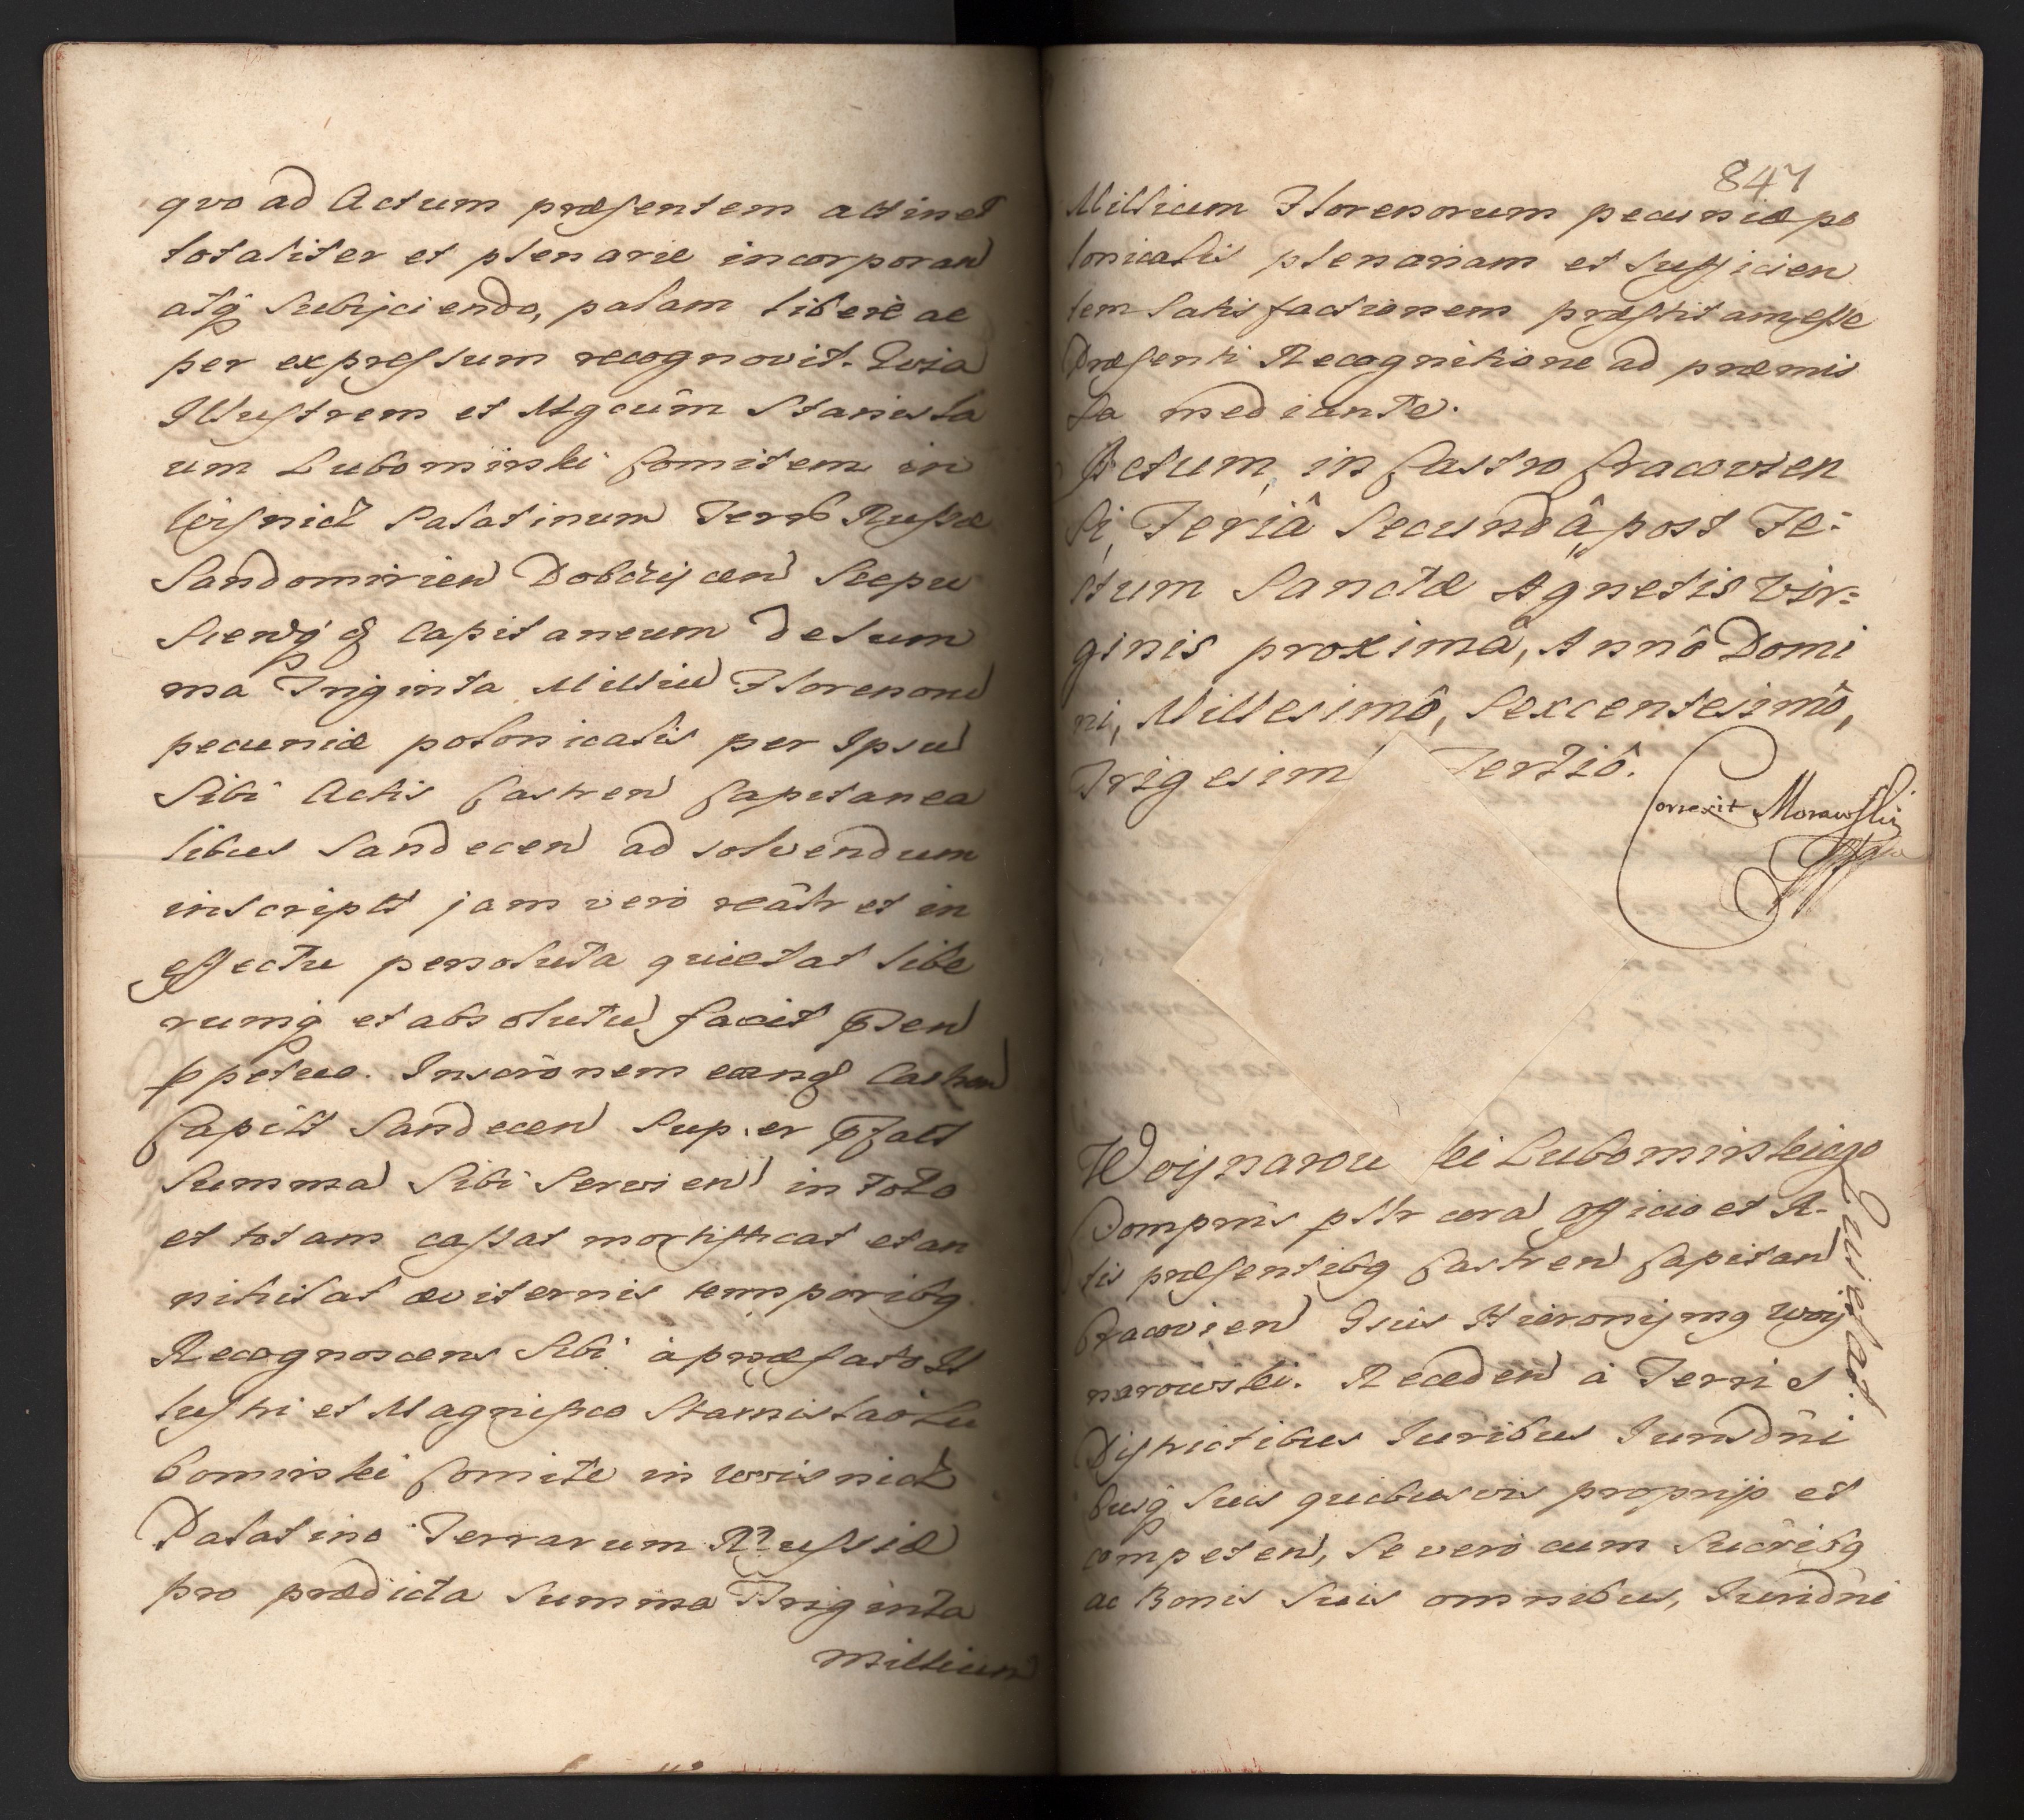 quo ad Actum præsentem attinet
totaliter et plenarie incorporan
atq subijciendo, palam libere ac
per expressum recognovit. Quia
Illustrem et Mgcum Stanisla
um Lubomirski Comitem in
Wisnicz Palatinum Terrar Russiæ
Sandomirien Dobczycen Scepu
sienq Capitaneum de sum
ma Triginta Milliu Florenoru
pecuniæ polonicalis per Ipsu
Sibi Actis Castren Capitanea
libus Sandecen ad solvendum
inscriptt jam vero reätr et in
effectu persoluta quietat libe
rumq et absolutu facit pnten
ppetuo. Inscronem eeanq Castren
Capitt Sandecen super pfatt
Summa Sibi Servien in toto
et totam cassat mortificat et an
nihilat æviternis temporibq
Recognoscens Sibi a præfato Il
lustri et Magnifico Stanislao Lu
bomirski Comite in Wisnicz
Palatino Terrarum Russiæ
pro prædicta Summa Triginta
Millium
847
Millium Florenorum pecuniæ po
lonicalis plenariam et sufficien
tem Satisfactionem præstitam esse
Præsenti Recognitione ad præmis
sa mediante.
Actum, in Castro Cracovien
si, Feriâ Secundâ post Fe:
stum Sanctæ Agnetis Vir:
ginis proximâ, Annô Domi
ni, Millesimô, Sexcentesimô,
Trigesim Tertiô.
Correxit Morawski
Woynarow ki Lubomirskiego
Quietat
Comprns psltr cora Officio et A-
tis præsentibq Castren Capitan
Cracovien Gsus Hieronijmq Woij
narowski. Receden à Terris
Districtibus Iuribus Iurisdni
busq suis quibusvis proprijs et
competen, Se vero cum Sucribq
ac Bonis Suis omnibus, Iurisdni